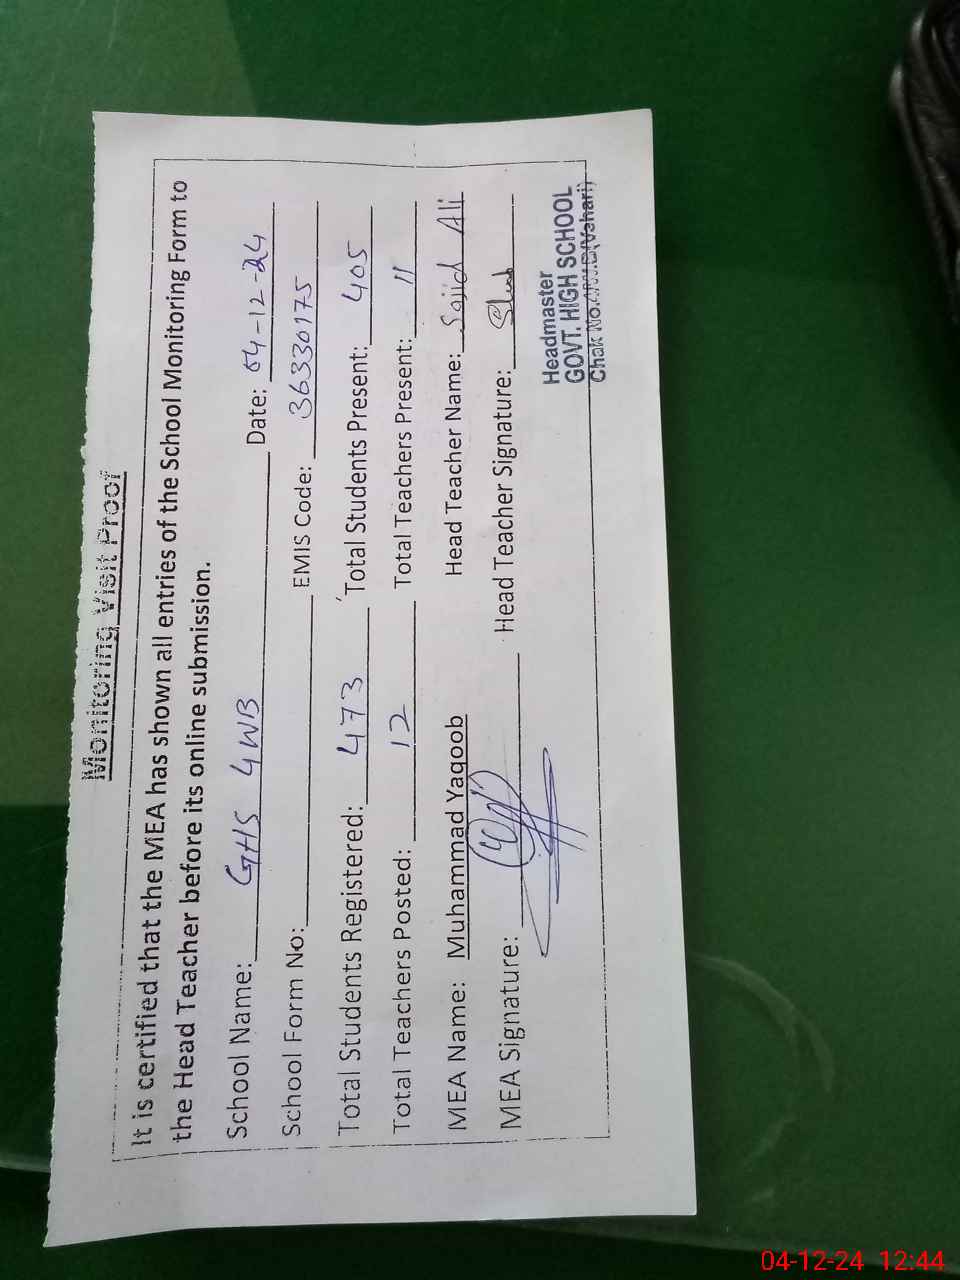 Monitoring Visit Proof
It is certified that the MEA has shown all entries of the School Monitoring Form to
the Head Teacher before its online submission.
School Name: GHS 4WB Date: 04-12-24
School Form No: EMIS Code: 36330175
Total Students Registered: 473 Total Students Present: 405
Total Teachers Posted: 12 Total Teachers Present: 11
MEA Name: Muhammad Yaqoob Head Teacher Name: Sajid Ali
MEA Signature: Head Teacher Signature:
Headmaster
GOVT. HIGH SCHOOL
Chak No. (Vehari)
04-12-24 12:44